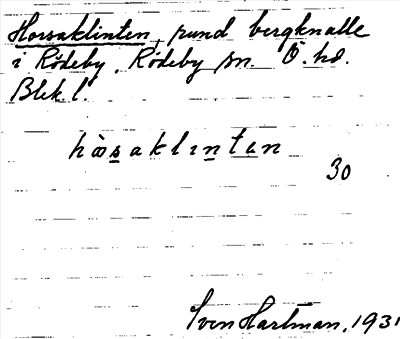 Horsaklinten, rund bergknalle
i Rödeby, Rödeby sn. Ö. hd.
Blek. l.
hàsaklıntən
30
Sven Hartman, 1931